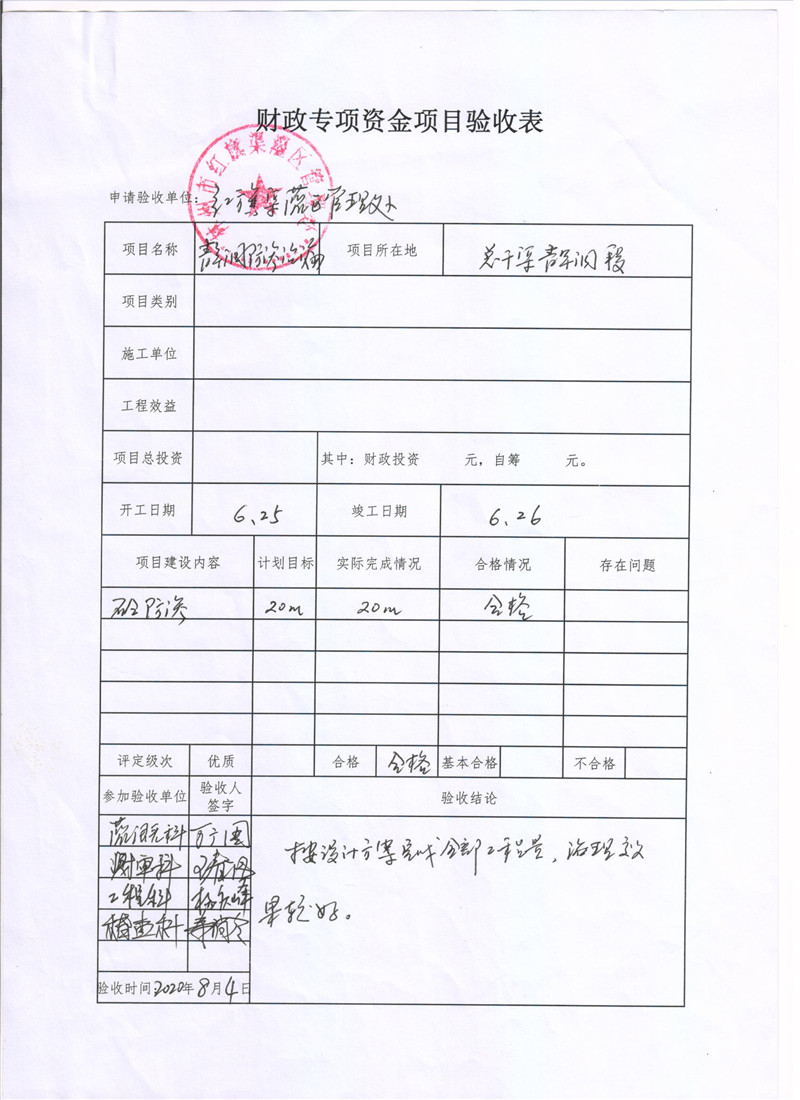 财政专项资金项目验收表
申请验收单位：红旗渠灌区管理处
项目名称 青年洞防渗治漏 项目所在地 总干渠青年洞段
项目类别
施工单位
工程效益
项目总投资 其中：财政投资 元，自筹 元。
开工日期 6.25 竣工日期 6.26
项目建设内容 计划目标 实际完成情况 合格情况 存在问题
砼防渗 20m 20m 合格
评定级次 优质 合格 合格 基本合格 不合格
参加验收单位 验收人签字 验收结论
灌溉科
财审科
工程科
稽查科
按设计方案完成全部工程量，治理效
果较好。
验收时间2020年8月4日